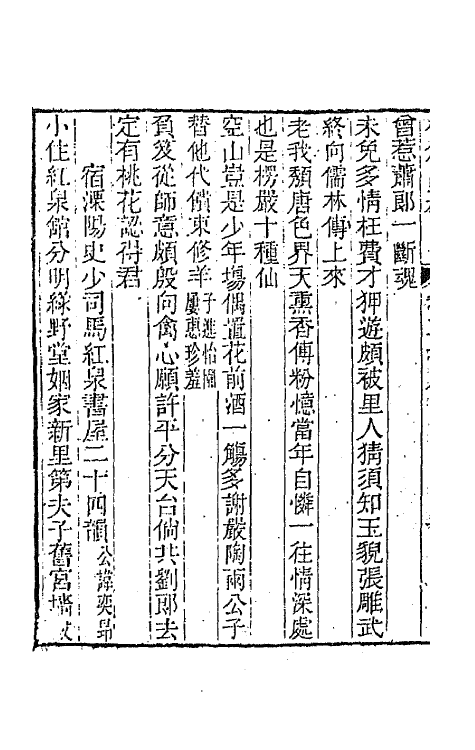 曾惹蕭郎一斷魂
未免多情枉費才狎遊頗被里人猜須知玉貌張雕武
終向儒林傳上來
老我頽唐色界天熏香傅粉憶當年自憐一往情深處
也是楞嚴十種仙
空山豈是少年塲偶置花前酒一觴多謝嚴陶兩公子
替他代償束修羊子進怡園屢惠珍羞
負笈從師意頗殷向禽心願許平分天台倘共劉郎去
定有桃花認得君
宿溧陽史少司馬紅泉書屋二十四韻公諱奕昂
小住紅泉館分明綠野堂姻家新里第夫子舊宮墻